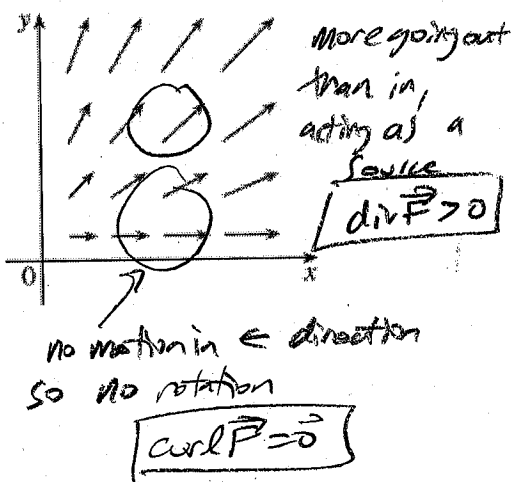 y
more going out
than in,
acting as a
source
div F⃗ > 0
0
x
no motion in ← direction
so no rotation
curl F⃗ = 0⃗